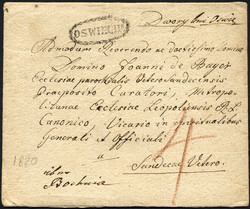 OSWIECIM
Admodum Reverendo ac doctissimo Domino
Domino Joanni de Bayer
Ecclesiae parochialis Vetero Sandecensis
Praeposito Curatori, Metropo
litanae Ecclesiae Leopoliensis R. L.
Canonico, Vicario in spiritualibus
Generali et Officiali
a
Sandecae Vetero.
Bochnia
1820
4